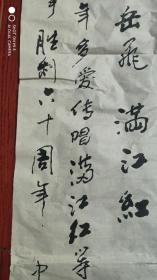 岳飛 滿江紅
年多爱传唱满江红等
胜利六十周年